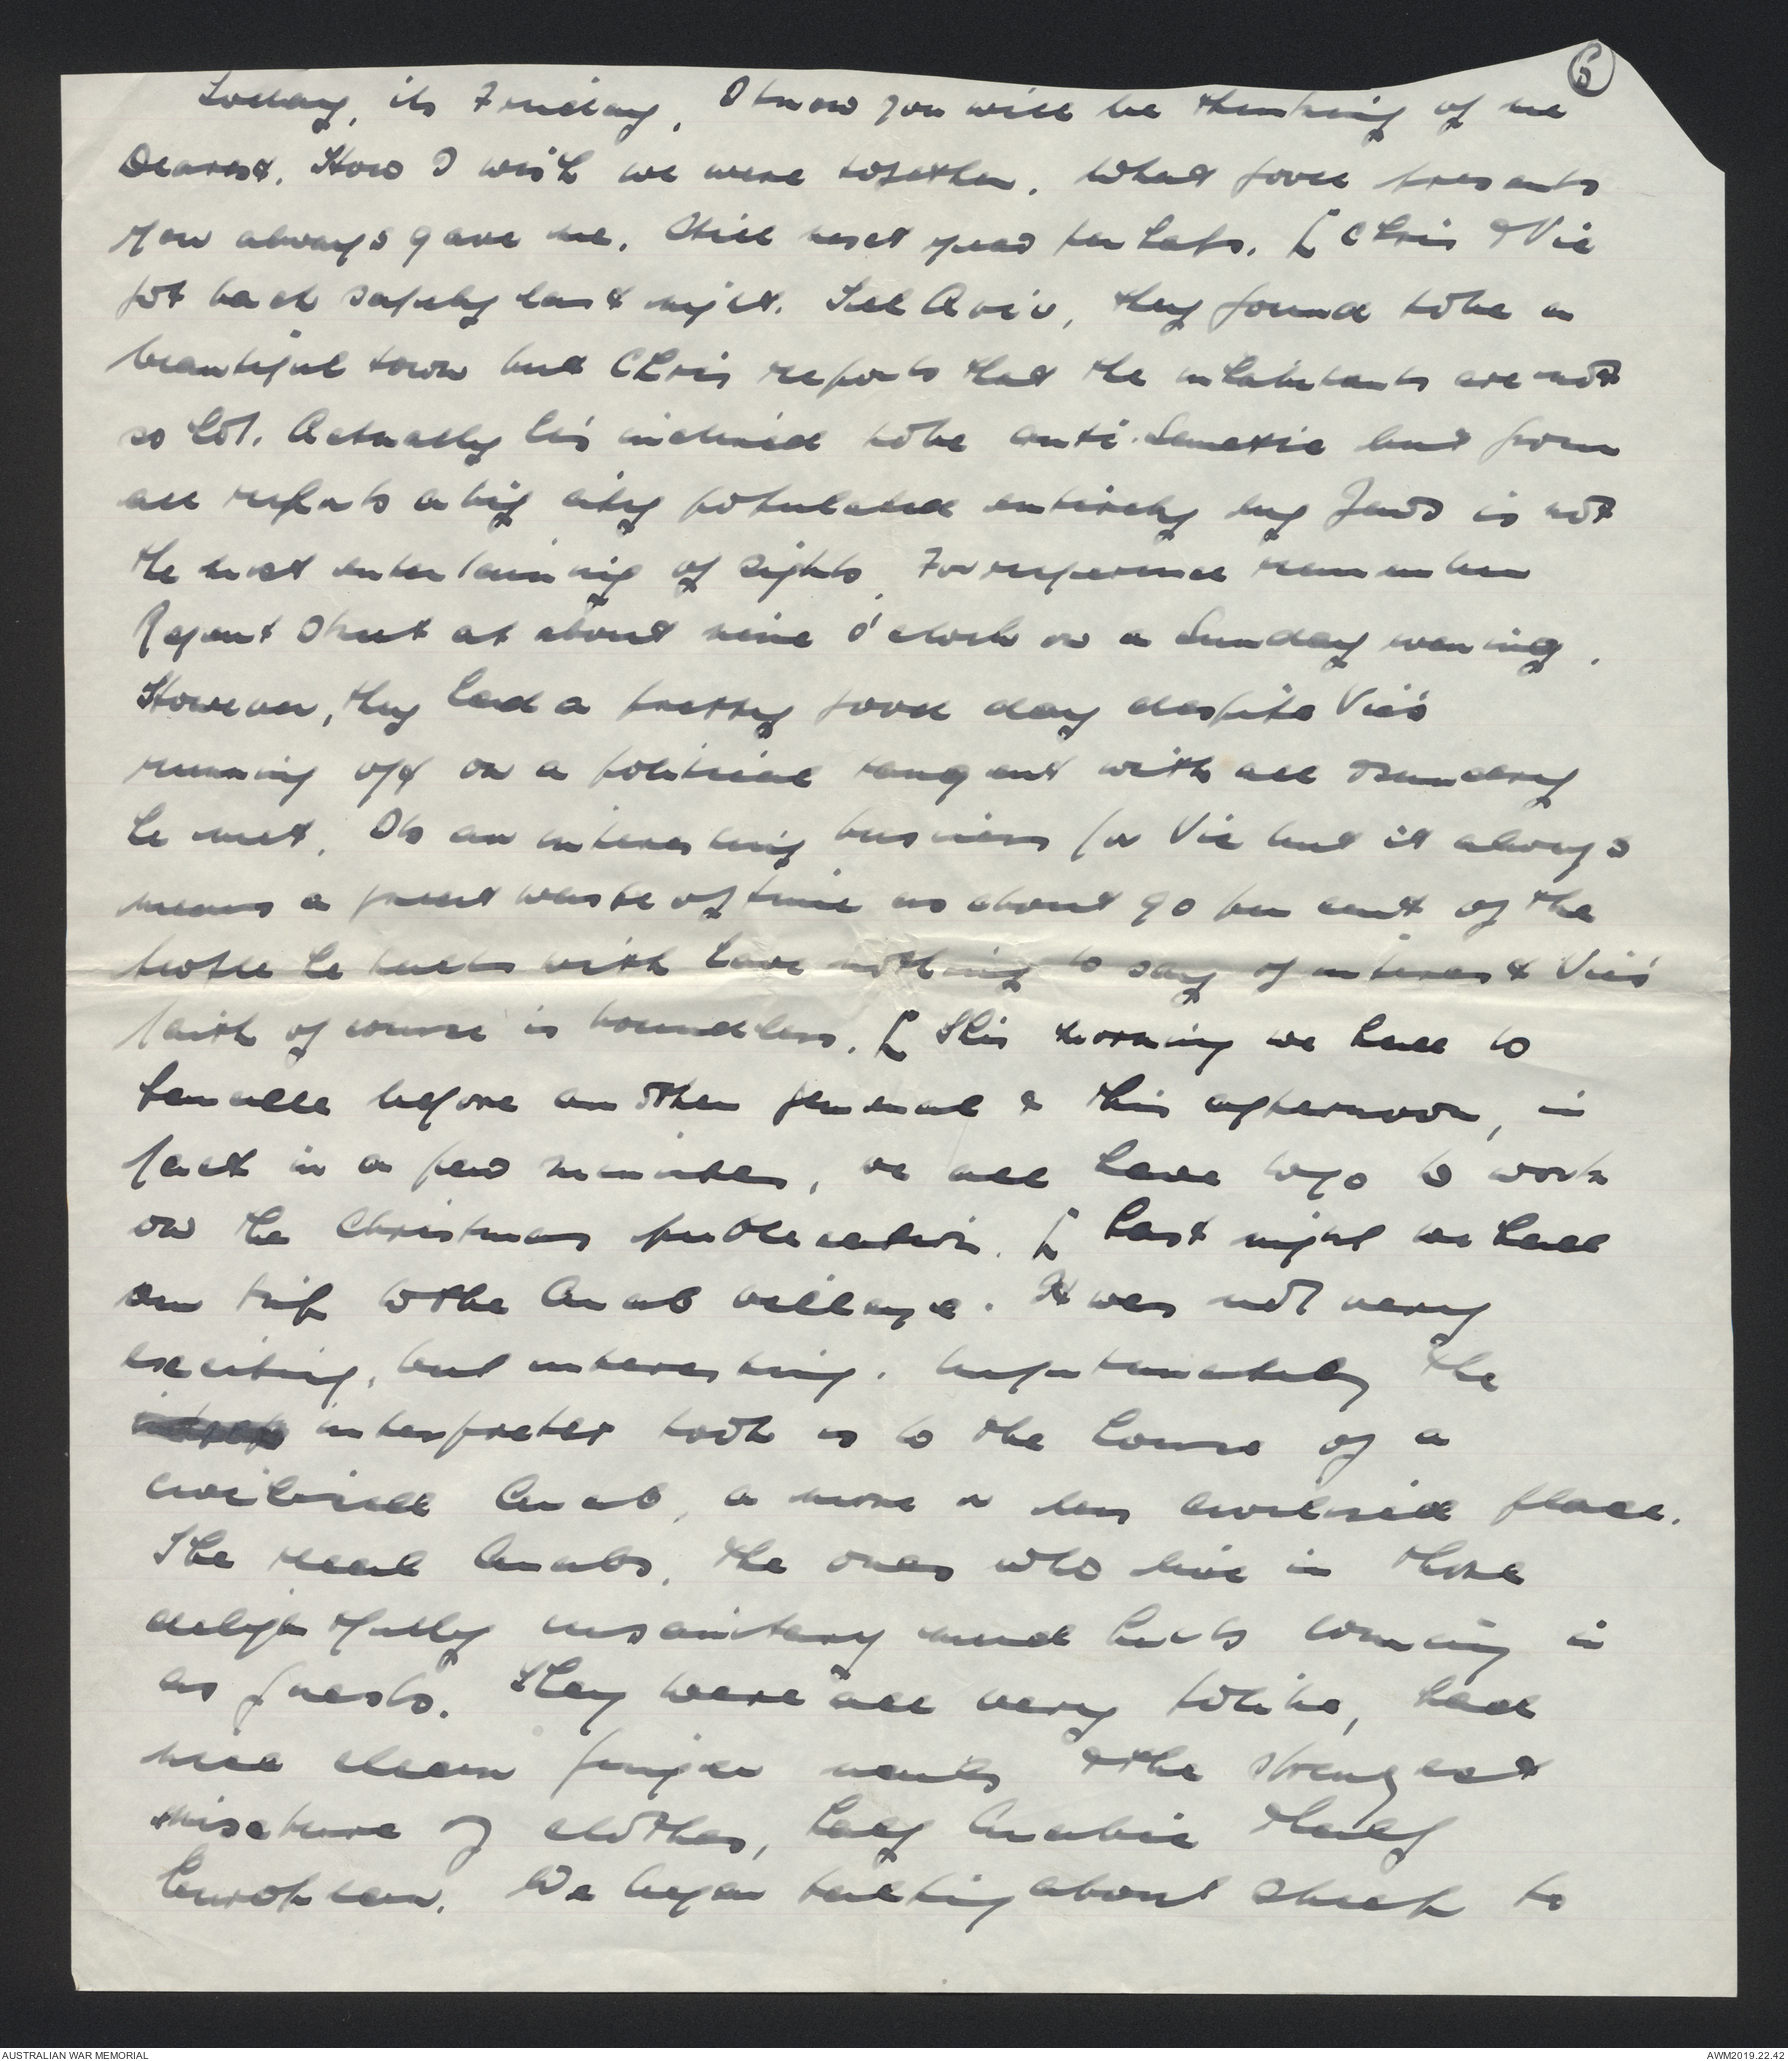 6
Today, its Friday, I know you will be thinking of me
Dearest. How I wish we were together. What good presents
you always gave me. Still next year perhaps. [ Chris & Vic
got back safely last night. Tel Aviv, they found to be a
beautiful town but Chris reports that the inhabitants are not
so hot. Actually he's inclined to be anti-Semetic but from
all reports a big city populated entirely by Jews is not
the most entertaining of sights. For reference remember
Regent Street at about nine o'clock on a Sunday evening.
However, they had a pretty good day despite Vic's
running off on a political tangent with all & sundry
he met. Its an interesting business for Vic but it always
means a great waste of time as about 90 per cent of the
people he talks with have nothing to say of interest. Vic's
faith of course is boundless. [ This morning we had to
parade before another general & this afternoon, in
fact in a few minutes, we all have to go to work
on the Christmas publication. [ Last night we had
our trip to the Arab village. It was not very
exciting, but interesting. Unfortunately the
interpreter took us to the house of a
civilised Arab, a more or less civilised place.
The real Arabs, the ones who live in those
delightfully insanitary mud huts coming in
as guests. They were all very polite, had
nice clean finger nails & the strangest
mixture of clothes, half Arabic & half
European. We began talking about sheep to
AUSTRALIAN WAR MEMORIAL
AWM2019.22.42